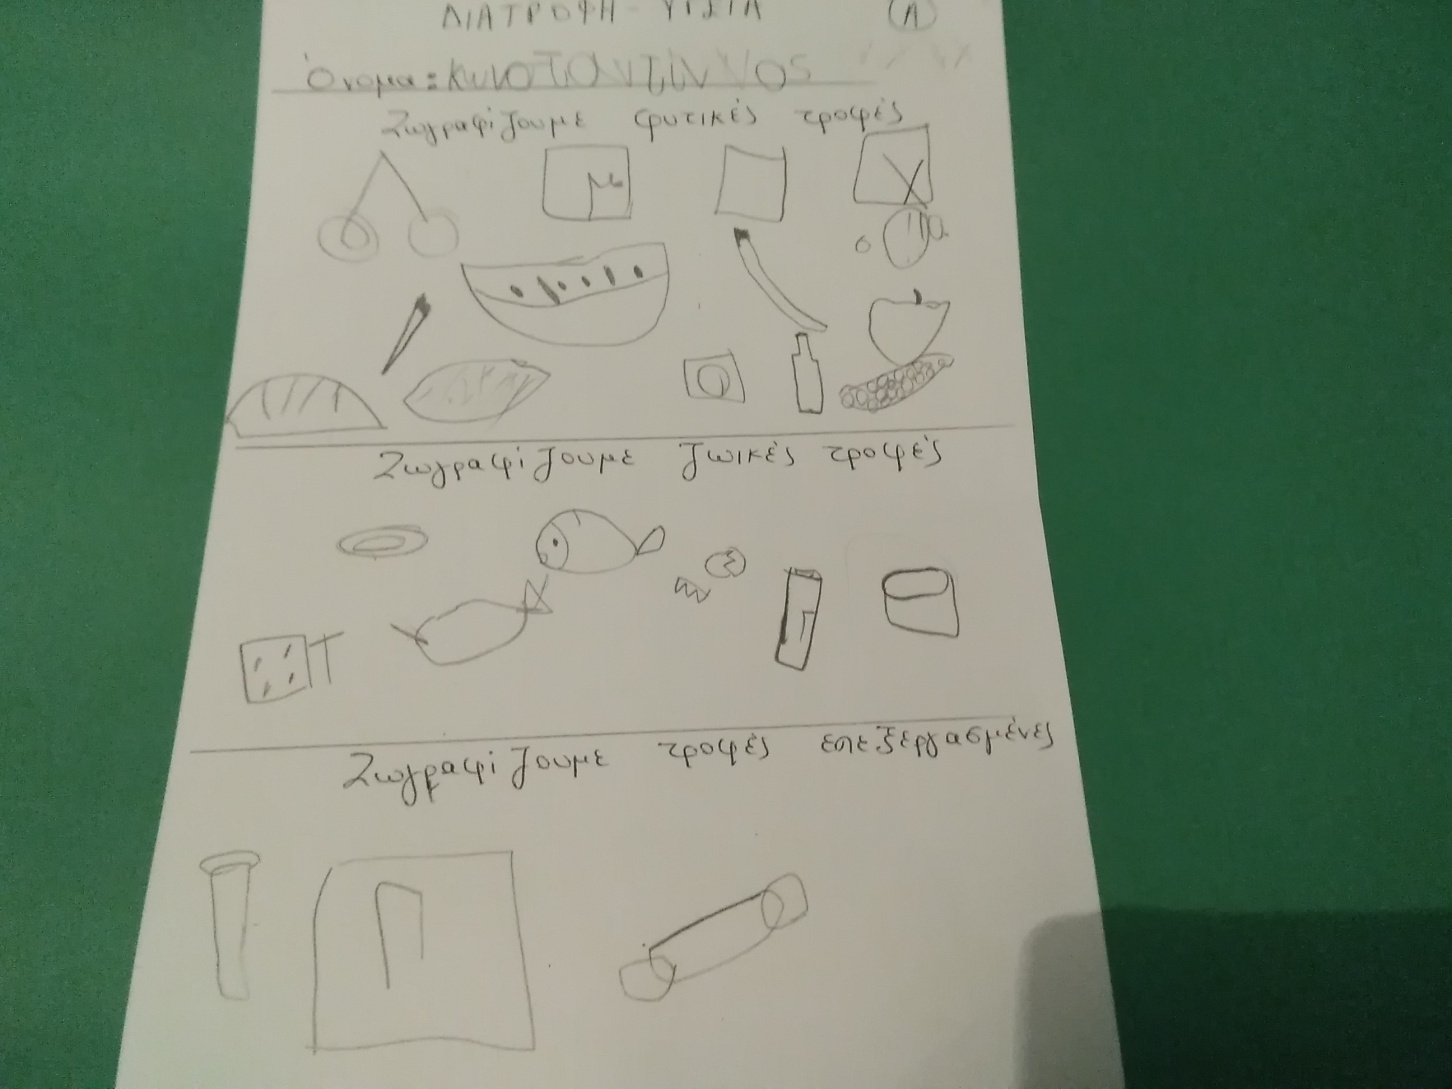 ΔΙΑΤΡΟΦΗ - ΥΓΕΙΑ Α
Όνομα: ΚωνσΤΑντίΝΝος
Ζωγραφίζουμε φυτικές τροφές
μ
Χ
Ζωγραφίζουμε ζωικές τροφές
Ζωγραφίζουμε τροφές επεξεργασμένες